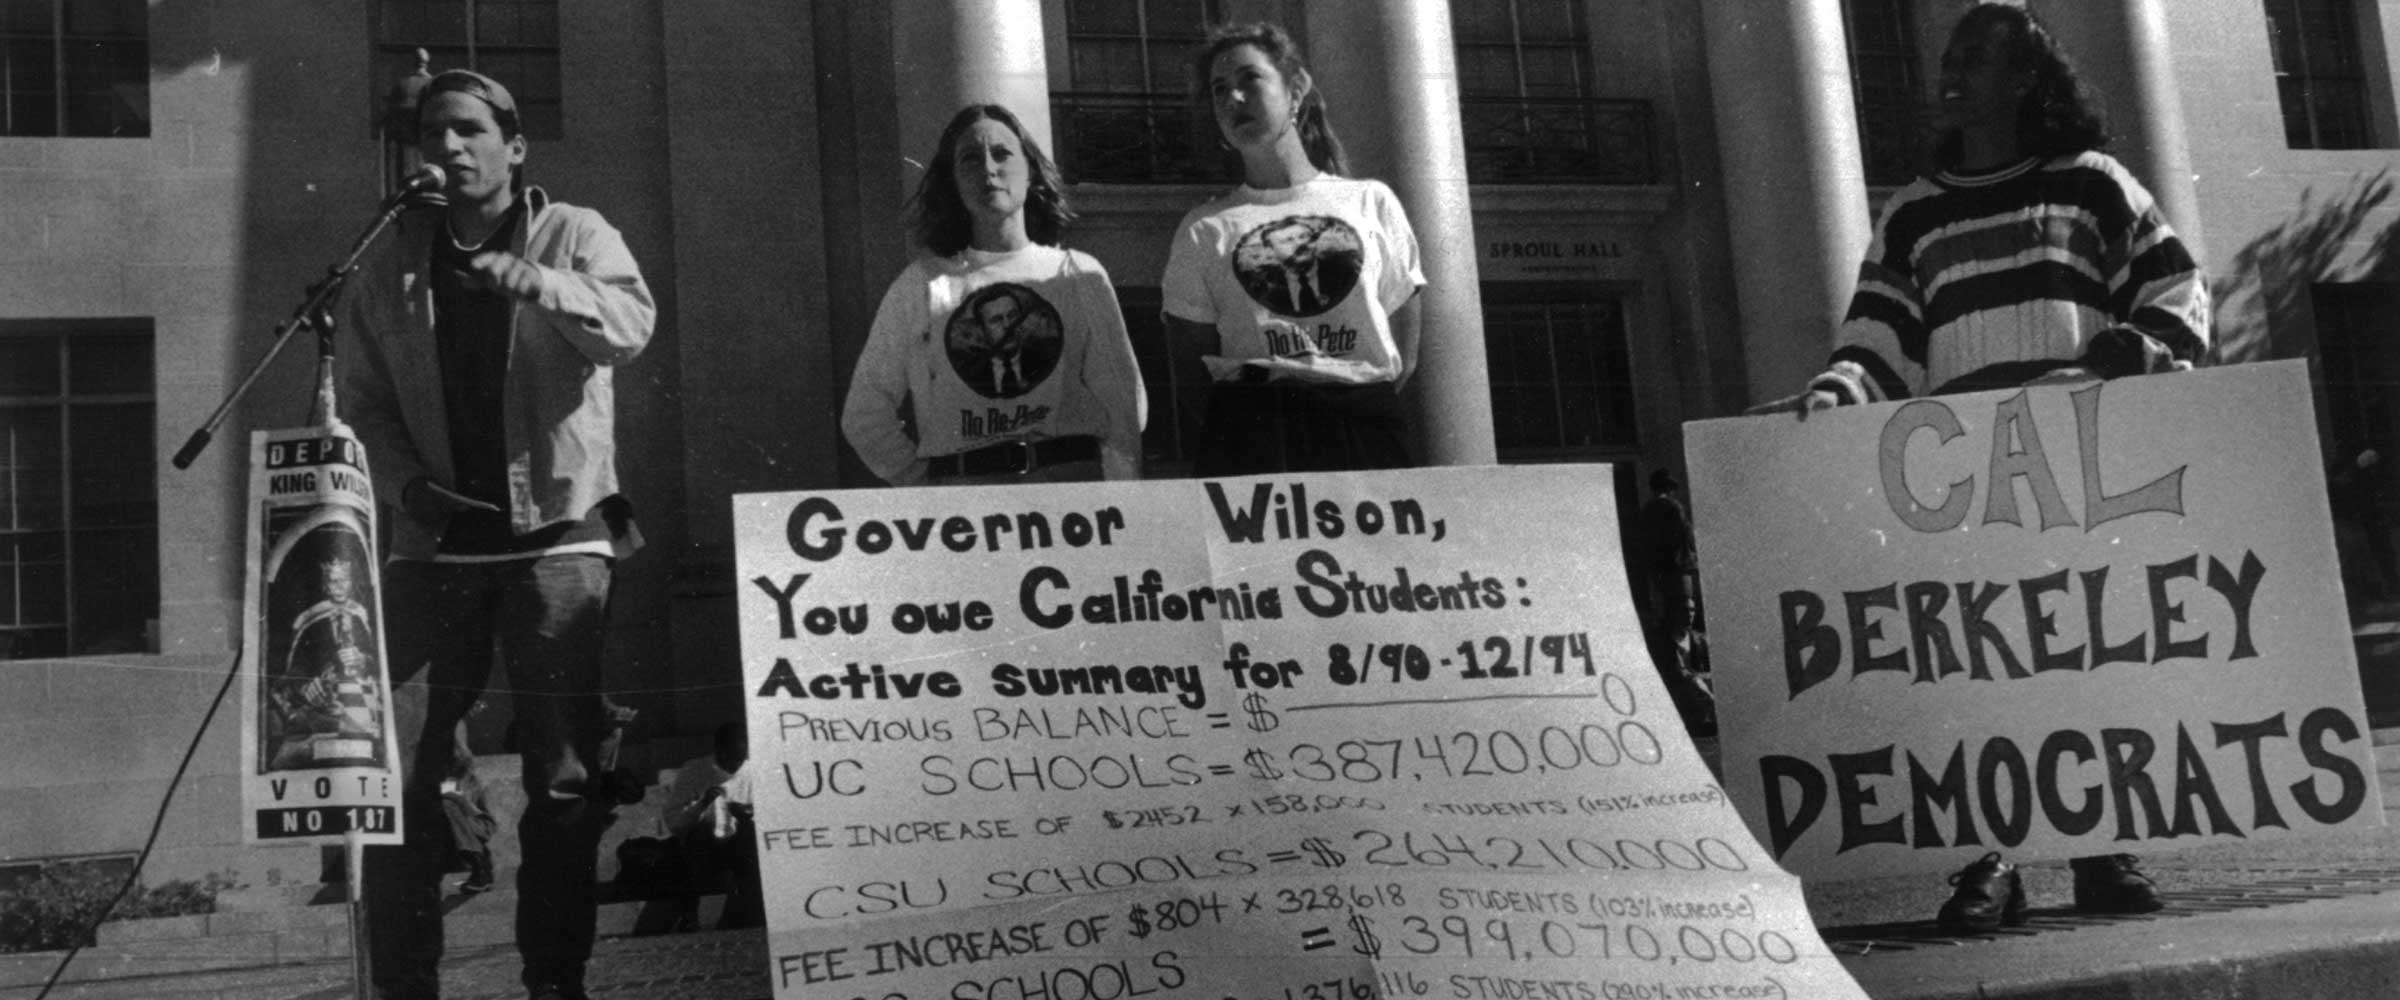 SPROUL HALL
No Re-Pete
No Re-Pete
DEPO
KING WILS
VOTE
NO 187
Governor Wilson,
You owe California Students:
Active summary for 8/90-12/94
PREVIOUS BALANCE = $ 0
UC SCHOOLS = $387,420,000
FEE INCREASE OF $2452 x 158,000 STUDENTS (151% increase)
CSU SCHOOLS = $264,210,000
FEE INCREASE OF $804 x 328,618 STUDENTS (103% increase)
SCHOOLS = $399,070,000
1,376,116 STUDENTS (290% increase)
CAL
BERKELEY
DEMOCRATS